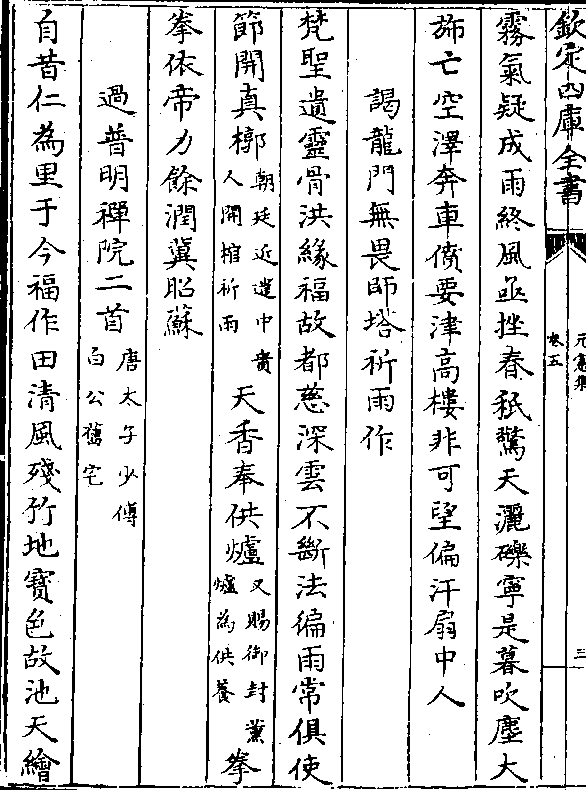 欽定四庫全書
元憲集
卷五
三
霧氣疑成雨終風亟挫春秖驚天灑礫寧是暮吹塵大
斾亡空澤奔車僨要津高樓非可望偏汙扇中人
謁龍門無畏師塔祈雨作
梵聖遺靈骨洪緣福故都慈深雲不斷法徧雨常俱使
節開真槨朝廷近遣中貴人開棺祈雨天香奉供爐又賜御封薰爐為供養拳
拳依帝力餘潤冀昭蘇
過普明禪院二首唐太子少傅白公舊宅
自昔仁為里于今福作田清風殘竹地寶色故池天繪